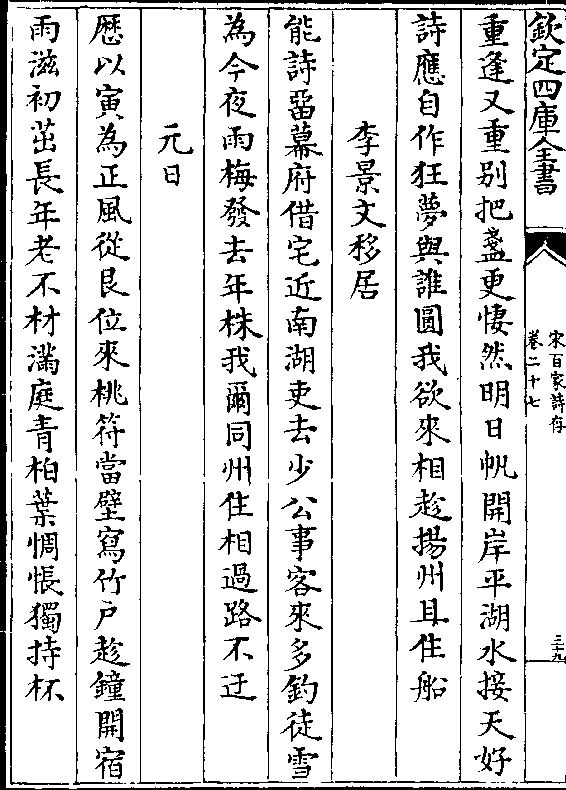 欽定四庫全書
宋百家詩存
卷二十七
三十九
重逢又重别把盞更悽然明日帆開岸平湖水接天好
詩應自作狂夢與誰圓我欲來相趂揚州且住船
李景文移居
能詩㽞幕府借宅近南湖吏去少公事客來多釣徒雪
為今夜雨梅發去年株我爾同州住相過路不迂
元日
厯以寅為正風從艮位來桃符當壁寫竹户趂鐘開宿
雨滋初茁長年老不材滿庭青柏葉惆悵獨持杯